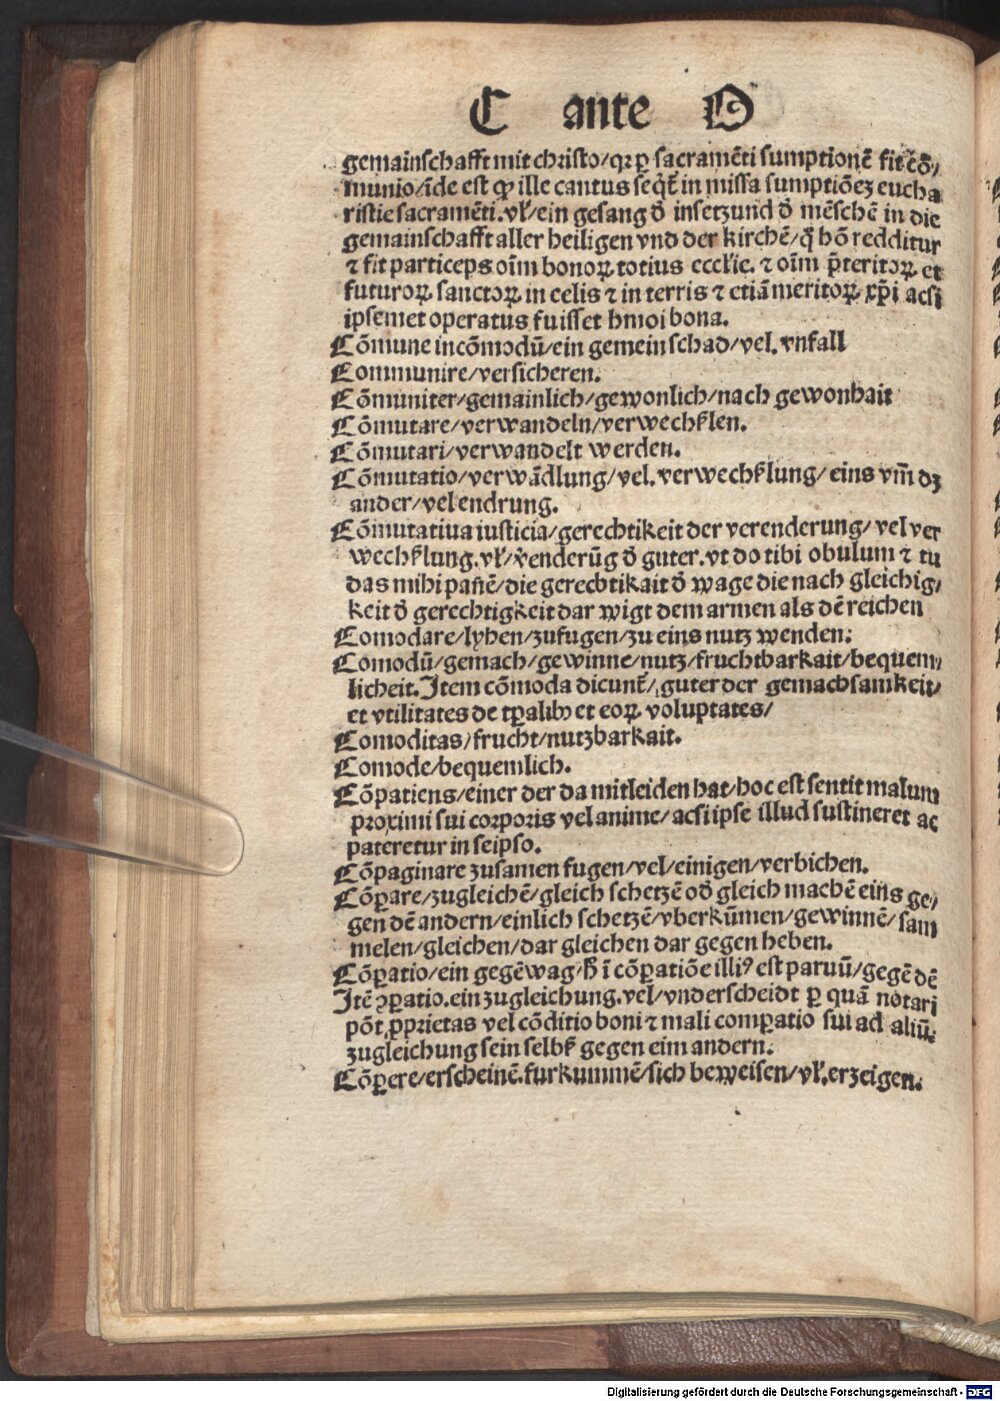 C ante O
gemainschafft mit christo/qꝛ ꝑ sacramēti sumptionē fit cō⸗
munio/īde est ꝙ ille cantus seq̄t᷑ in missa sumptiōeꝫ eucha
ristie sacramēti.vl̓/ein gesang d̓ insetzund d̓ mēschē in die
gemainschafft aller heiligen vnd der kirchē/q̄ hō redditur
⁊ fit particeps oīm bonoꝝ totius eccl̓ie. ⁊ oīm p̄teritoꝝ et
futuroꝝ sanctoꝝ in celis ⁊ in terris ⁊ etiā meritoꝝ xp̄i acsi
ipsemet operatus fuisset hmoi bona.
Cōmune incōmodū/ein gemein schad/vel.vnfall
Communire/versicheren.
Cōmuniter/gemainlich/gewonlich/nach gewonhait
Cōmutare/verwandeln/verwechslen.
Cōmutari/verwandelt werden.
Cōmutatio/verwādlung/vel.verwechslung/eins vm̄ dꝫ
ander/vel endrung.
Cōmutatiua iusticia/gerechtikeit der verenderung/vel ver
wechslung.vl̓/v̓enderūg d̓ guter.vt do tibi obulum ⁊ tu
das mihi panē/die gerechtikait d̓ wage die nach gleichig⸗
keit d̓ gerechtigkeit dar wigt dem armen als dē reichen
Comodare/lyhen/zufugen/zu eins nutz wenden.
Comodū/gemach/gewinne/nutz/fruchtbarkait/bequem⸗
licheit.Item cōmoda dicunt᷑/guter der gemachsamkeit/
et vtilitates de tꝑalibꝫ et eoꝝ voluptates/
Comoditas/frucht/nutzbarkait.
Comode/bequemlich.
Cōpatiens/einer der da mitleiden hat/hoc est sentit malum
proximi sui corporis vel anime/acsi ipse illud sustineret ac
pateretur in seipso.
Cōpaginare zusamen fugen/vel/einigen/verbichen.
Cōꝑare/zugleichē/gleich schetzē od̓ gleich machē eins ge⸗
gen dē andern/einlich schetzē/vberkūmen/gewinnē/sam
melen/gleichen/dar gleichen dar gegen heben.
Cōꝑatio/ein gegēwag/h̄ ī cōꝑatiōe illiꝰ est paruū/gegē dē
Itē ꝯꝑatio.ein zugleichung.vel/vnderscheidt ꝑ quā notari
pōt ꝓprietas vel cōditio boni ⁊ mali comꝑatio sui ad aliū.
zugleichung sein selbs gegen eim andern.
Cōꝑere/erscheinē.furkummē/sich beweisen/vl̓.erzeigen.
Digitalisierung gefördert durch die Deutsche Forschungsgemeinschaft - DFG